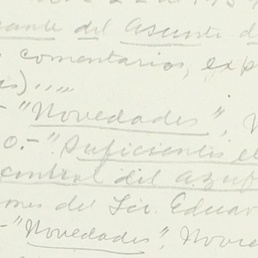 ante del Asunto d
comentarios, exp
s)
- "Novedades", N
0.- "Suficientes el
control del azuf
ones de Lic. Eduar
- "Novedades", Novie